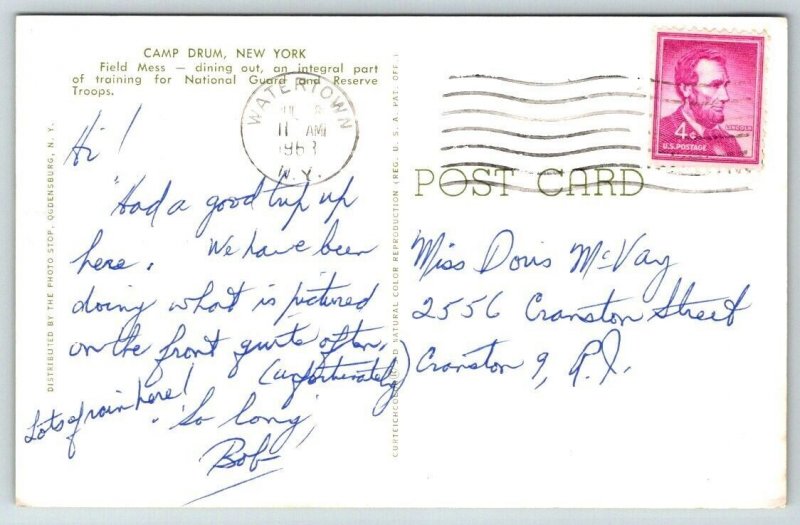 CAMP DRUM, NEW YORK
Field Mess — dining out, an integral part
of training for National Guard and Reserve
Troops.
WATERTOWN
JUL 8
11 AM
1963
N.Y.
LINCOLN
4¢
U.S. POSTAGE
POST CARD
Hi!
Had a good trip up
here. We have been
doing what is pictured
on the front quite often.
(unfortunately)
Lots of rain here!
So long,
Bob
Miss Doris McVay
2556 Cranston Street
Cranston 9, R.I.
DISTRIBUTED BY THE PHOTO STOP, OGDENSBURG, N. Y.
NATURAL COLOR REPRODUCTION (REG. U. S. A. PAT. OFF.)